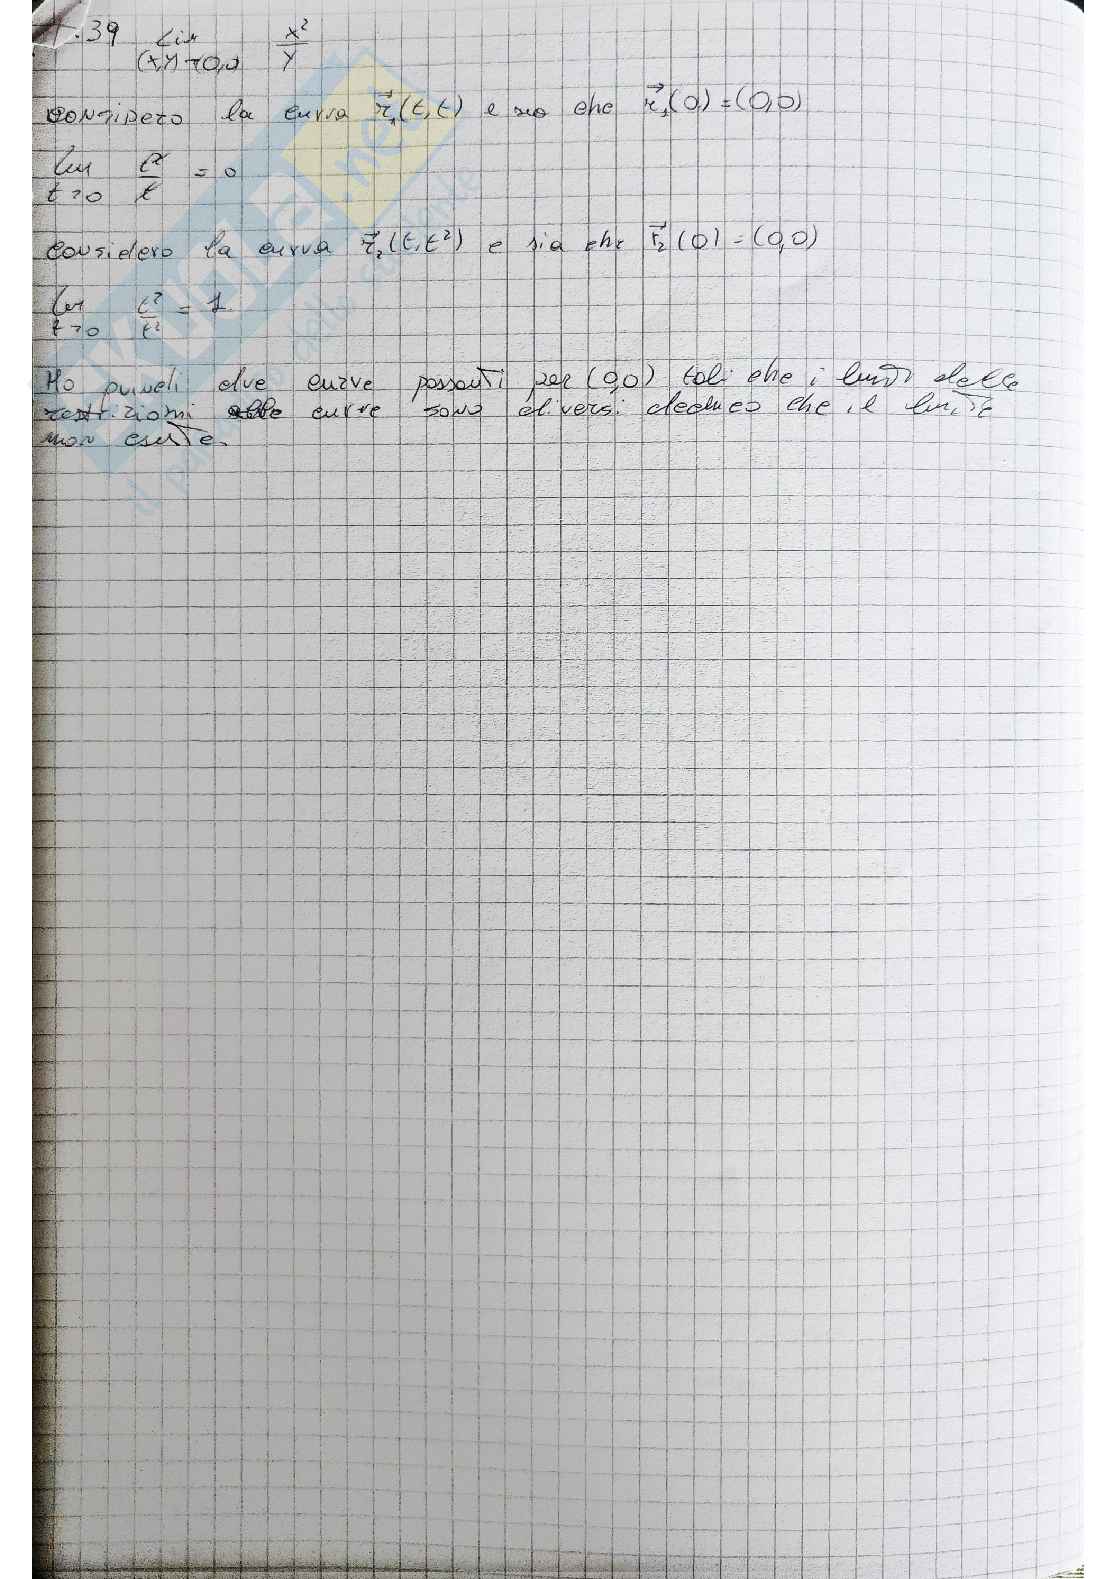 1.39 Lim x²
(x,y)→(0,0) y
CONSIDERO la curva r⃗₁(t,t) e sia che r⃗₁(0)=(0,0)
lim t² = 0
t→0 t
Considero la curva r⃗₂(t,t²) e sia che r⃗₂(0)=(0,0)
lim t² = 1
t→0 t²
Ho quindi due curve passanti per (0,0) tali che i limiti delle
restrizioni alle curve sono diversi deduco che il limite
non esiste.
skuola.net
il paradiso dello studente